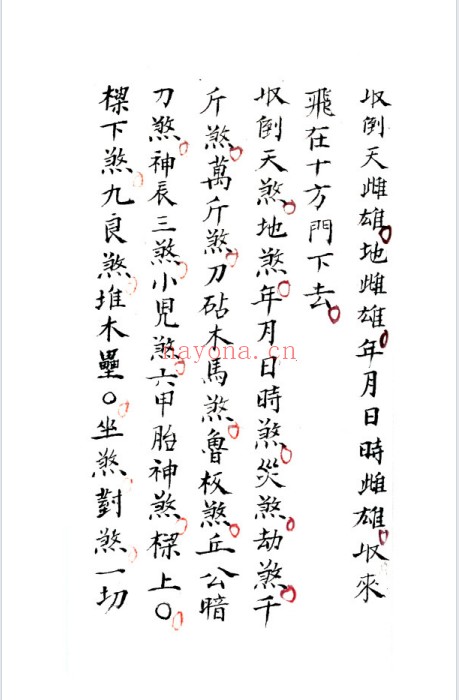 收倒天雌雄地雌雄年月日時雌雄收來
飛在十方門下去
收倒天煞地煞年月日時煞災煞劫煞千
斤煞萬斤煞刀砧木馬煞魯板煞丘公暗
刀煞神辰三煞小児煞六甲胎神煞樑上〇
樑下煞九良煞堆木壘〇坐煞對煞一切
nayona.cn